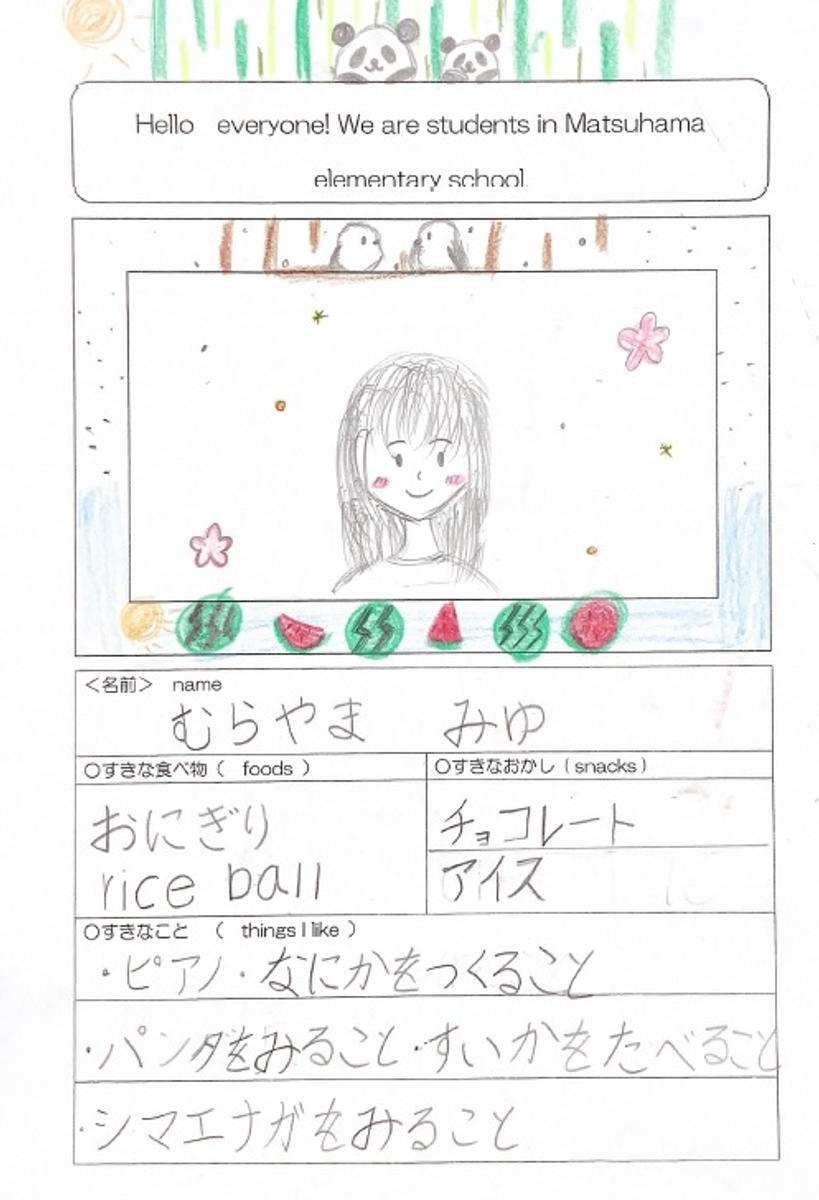 Hello everyone! We are students in Matsuhama
elementary school.
＜名前＞ name
むらやま みゆ
○すきな食べ物（ foods ）
おにぎり
rice ball
○すきなおかし（snacks）
チョコレート
アイス
○すきなこと （ things I like ）
・ピアノ・なにかをつくること
・パンダをみること・すいかをたべること
・シマエナガをみること